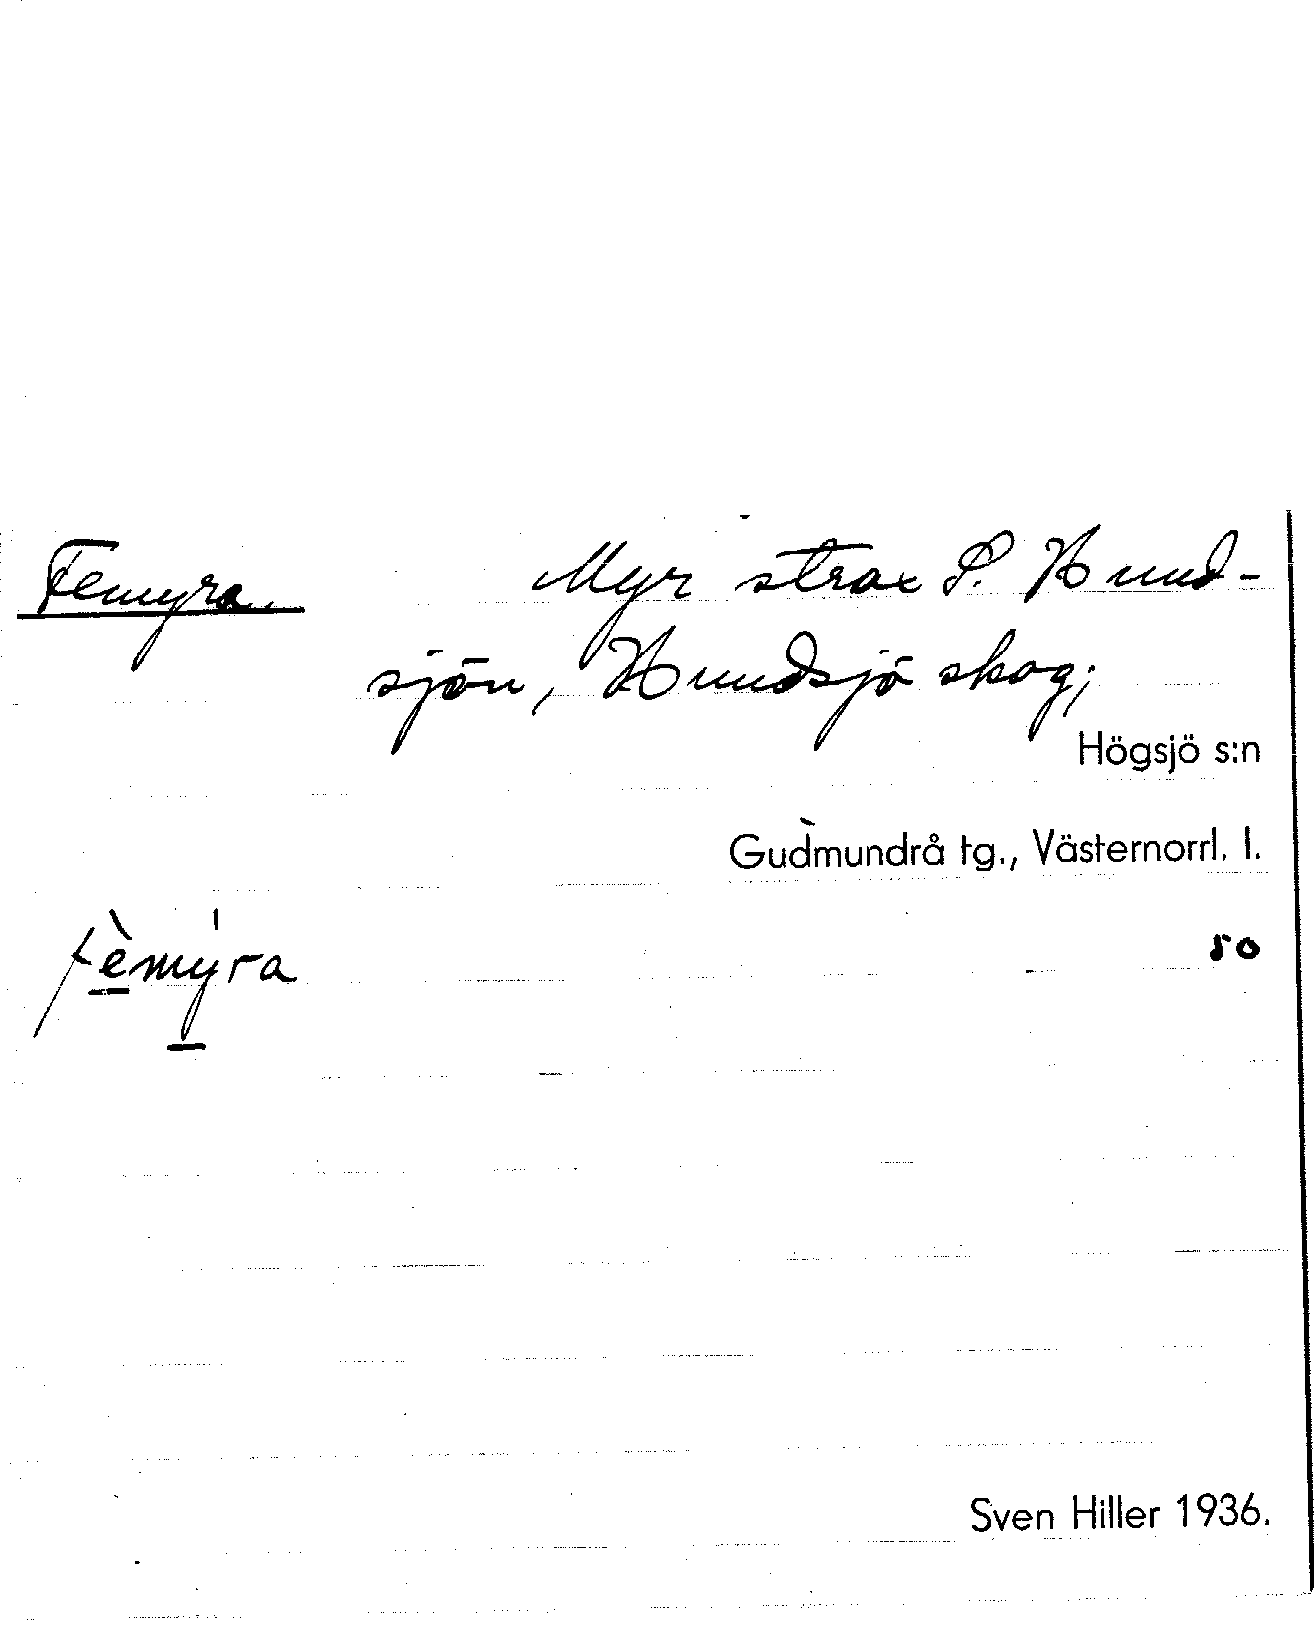 Femyra. Myr strax S. Hund-
sjön, Hundsjö skog;
Högsjö s:n
Gudmundrå tg., Västernorrl. l.
fèmýra 50
Sven Hiller 1936.